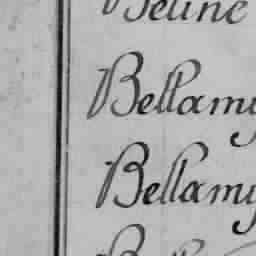 Beline
Bellamy
Bellamy